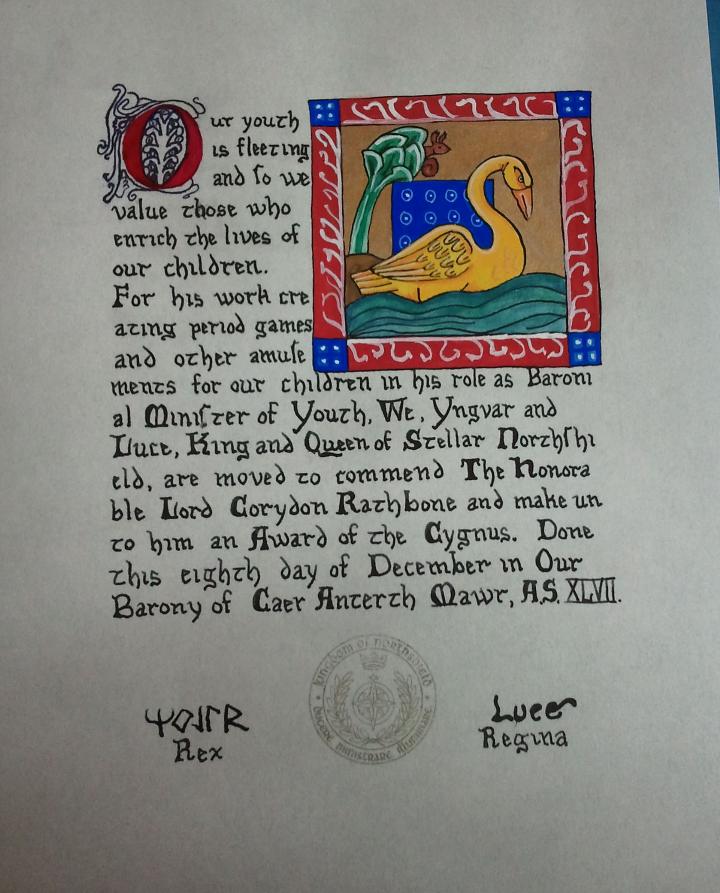 Our youth
is fleeting
and so we
value those who
enrich the lives of
our children.
For his work cre
ating period games
and other amuse
ments for our children in his role as Baroni
al Minister of Youth, We, Yngvar and
Luce, King and Queen of Stellar Northshi
eld, are moved to commend The Honora
ble Lord Corydon Rathbone and make un
to him an Award of the Cygnus. Done
this eighth day of December in Our
Barony of Caer Anterth Mawr, A.S. XLVII.
kingdom of northshield
ministrare illuminare
Rex
Luce
Regina